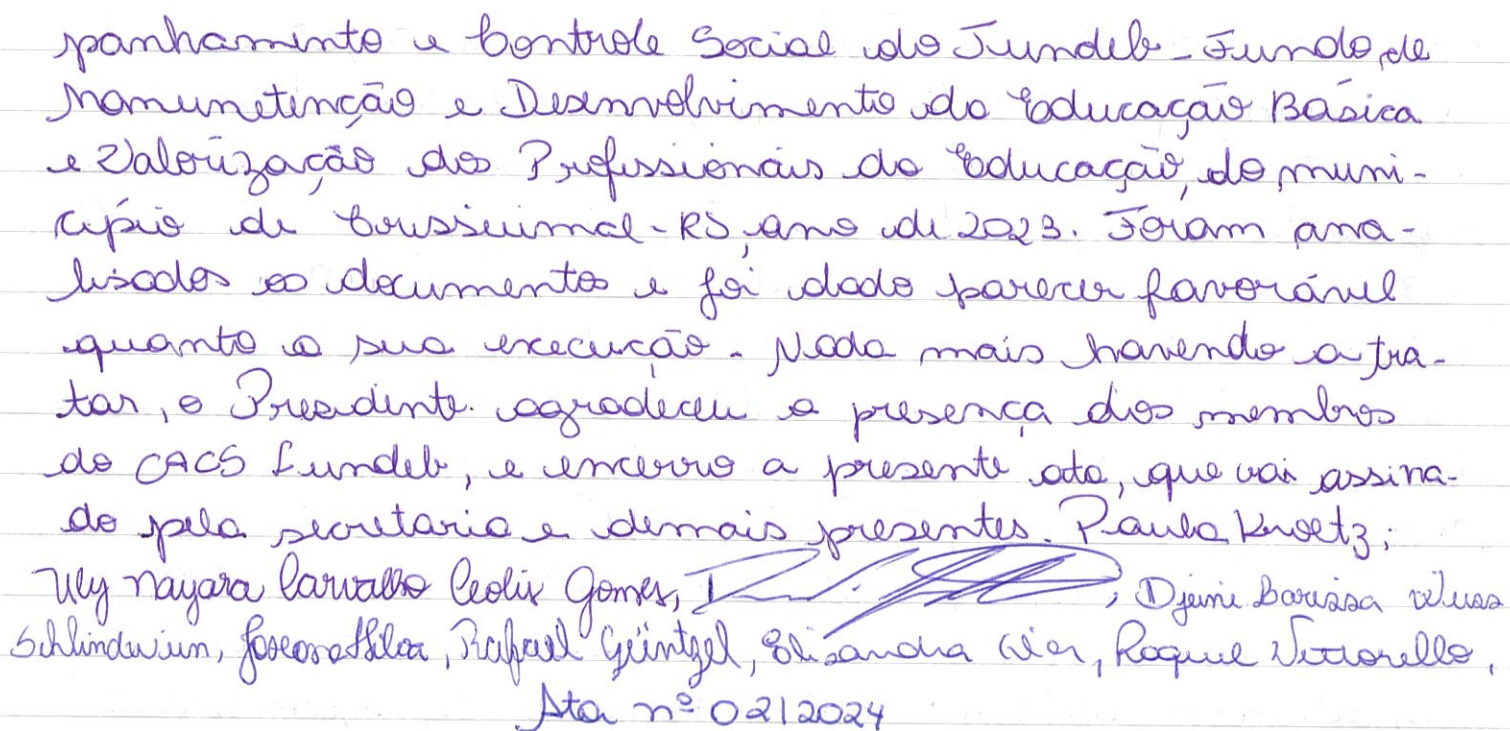 panhamento e Controle Social do Fundeb - Fundo de
Manunetenção e Desenvolvimento da Educação Básica
e Valorização dos Profissionais da Educação, do muni-
cípio de Crissiumal - RS, ano de 2023. Foram ana-
lisados os documentos e foi dado parecer favorável
quanto a sua execução. Nada mais havendo a tra-
tar, o Presidente agradeceu a presença dos membros
do CACS Fundeb, e encerro a presente ata, que vai assina-
da pela secretaria e demais presentes. Paula Knoetz;
Uly Nayara Carvalho Ceolix Gomes, , Djeini Larissa
Schlindwein, , Rafael Güntzel, Elisandra , Roque Vettorello,
Ata nº 02/2024